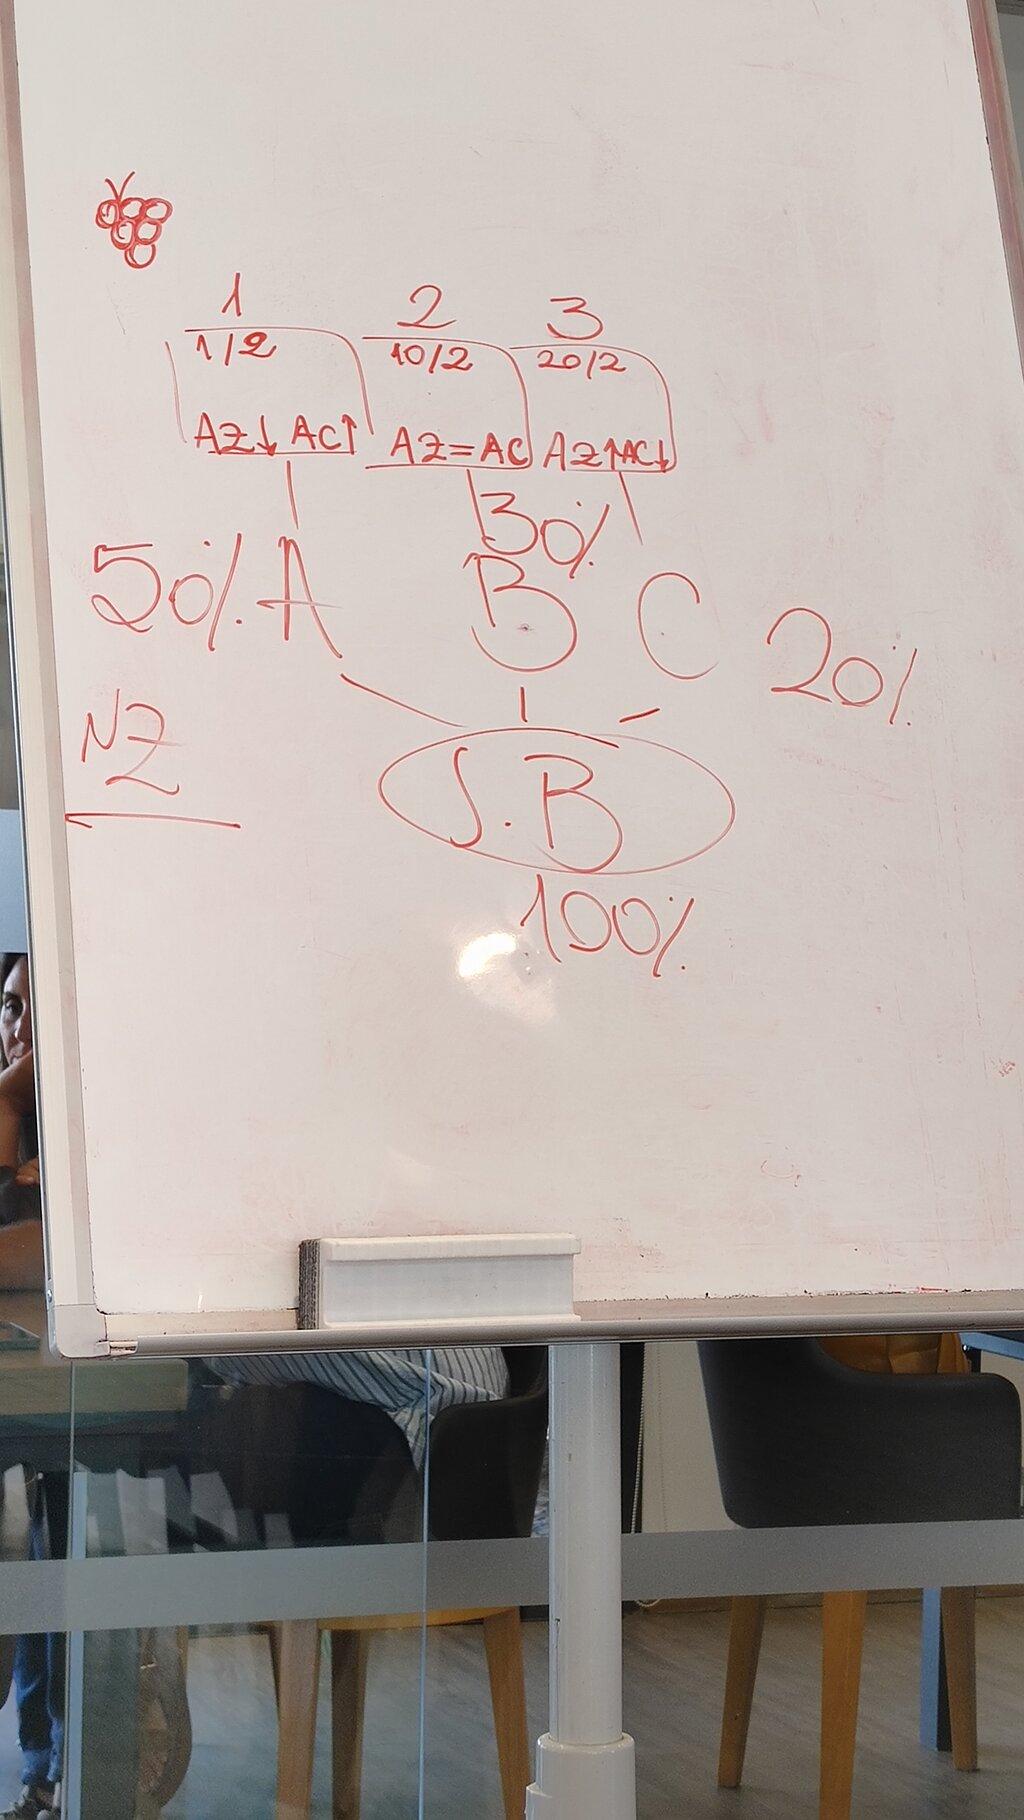 1 2 3
1/2 10/2 20/2
AZ↓ AC↑ AZ=AC AZ↑AC↓
30%
50% A B C 20%
NZ
S.B
100%